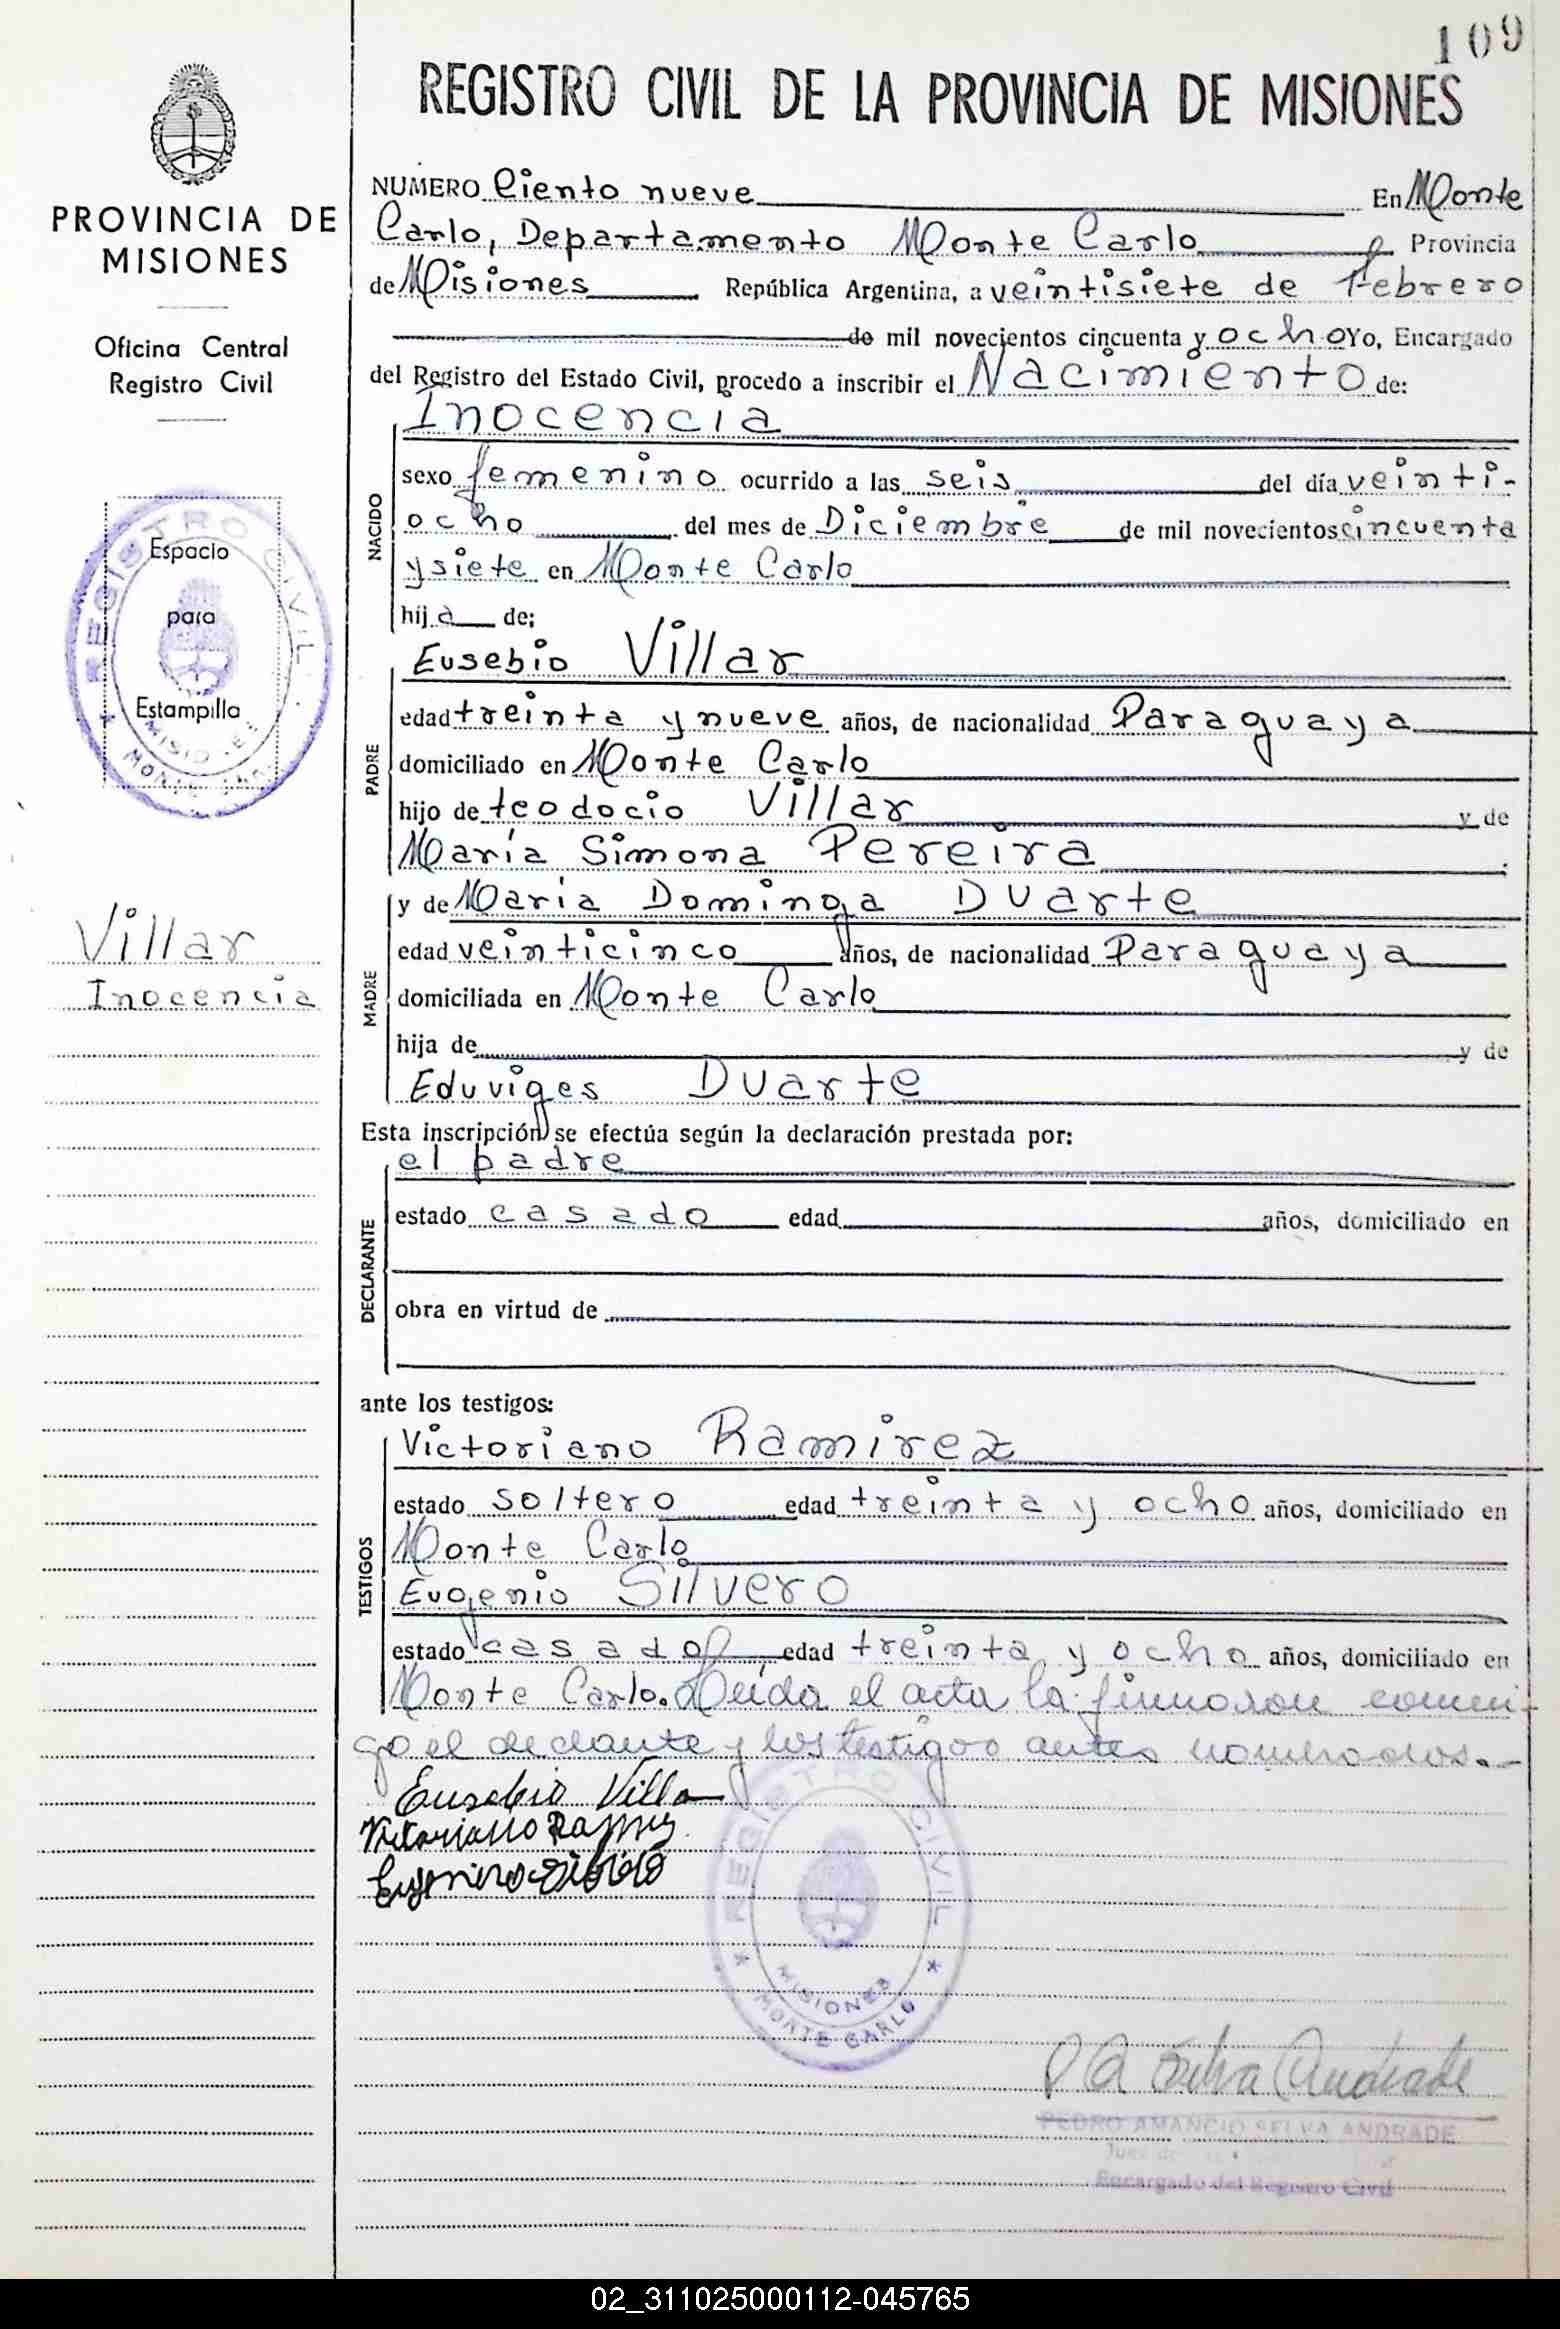 109
REGISTRO CIVIL DE LA PROVINCIA DE MISIONES
PROVINCIA DE
MISIONES
Oficina Central
Registro Civil
REGISTRO CIVIL
Espacio
para
Estampilla
MISIO
MONTE
Villar
Inocencia
NUMERO Ciento nueve En Monte
Carlo, Departamento Monte Carlo Provincia
de Misiones República Argentina, a veintisiete de Febrero
de mil novecientos cincuenta y ocho Yo, Encargado
del Registro del Estado Civil, procedo a inscribir el Nacimiento de:
NACIDO
Inocencia
sexo femenino ocurrido a las seis del día veinti-
ocho del mes de Diciembre de mil novecientos cincuenta
y siete en Monte Carlo
hija de;
PADRE
Eusebio Villar
edad treinta y nueve años, de nacionalidad Paraguaya
domiciliado en Monte Carlo
hijo de teodocio Villar y de
María Simona Pereira
MADRE
y de María Dominga Duarte
edad veinticinco años, de nacionalidad Paraguaya
domiciliada en Monte Carlo
hija de y de
Eduviges Duarte
Esta inscripción se efectúa según la declaración prestada por:
DECLARANTE
el padre
estado casado edad años, domiciliado en
obra en virtud de
ante los testigos:
TESTIGOS
Victoriano Ramirez
estado soltero edad treinta y ocho años, domiciliado en
Monte Carlo
Eugenio Silvero
estado casado edad treinta y ocho años, domiciliado en
Monte Carlo. Leída el acta la firmaron conmi-
go el declante y los testigos antes nombrados.-
Eusebio Villa
Victoriano
REGISTRO CIVIL
MISIONES
MONTE CARLO
P A Selva Andrade
PEDRO AMANCIO SELVA ANDRADE
Juez de
Encargado del Registro Civil
02_311025000112-045765